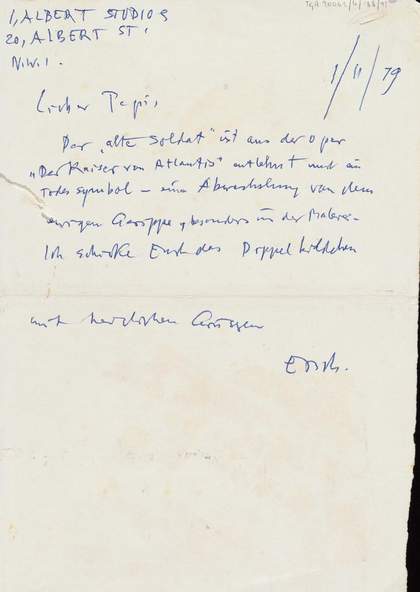 1, ALBERT STUDIOS
20, ALBERT ST.
N.W.1.
1/11/79
Lieber Papi,
Der „alte Soldat" ist aus der Oper
„Der Kaiser von Atlantis" entlehnt und ein
Todessymbol – eine Abwechslung von dem
ewigen Gerippe, besonders in der Malerei.
Ich schicke Euch das Doppelbildchen
mit herzlichen Grüssen